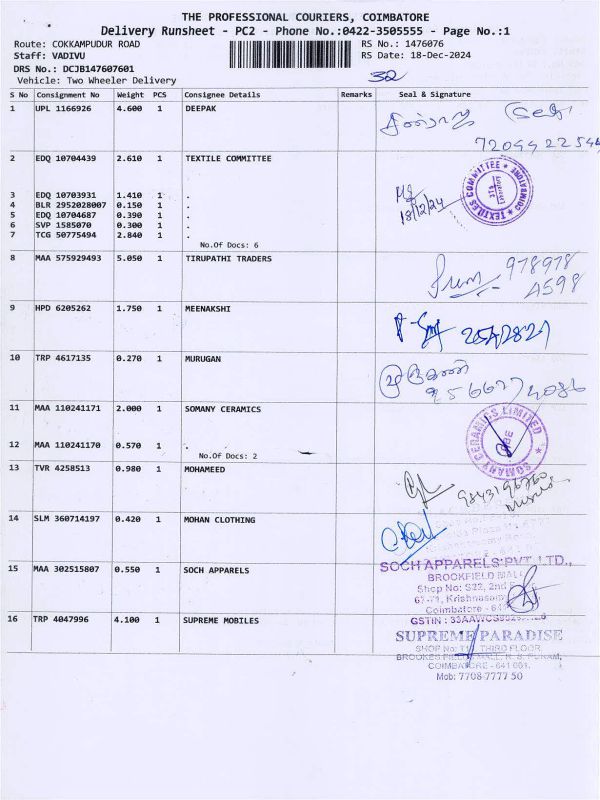 THE PROFESSIONAL COURIERS, COIMBATORE
Delivery Runsheet - PC2 - Phone No.:0422-3505555 - Page No.:1
Route: COKKAMPUDUR ROAD RS No.: 1476076
Staff: VADIVU RS Date: 18-Dec-2024
DRS No.: DCJB147607601
Vehicle: Two Wheeler Delivery 32
S No Consignment No Weight PCS Consignee Details Remarks Seal & Signature
1 UPL 1166926 4.600 1 DEEPAK
2 EDQ 10704439 2.610 1 TEXTILE COMMITTEE
TEXTILES COMMITTEE ★ COIMBATORE ★
3 EDQ 10703931 1.410 1 .
4 BLR 2952028007 0.150 1 .
18/12/24
5 EDQ 10704687 0.390 1 .
6 SVP 1585070 0.300 1 .
7 TCG 50775494 2.840 1 .
No.Of Docs: 6
8 MAA 575929493 5.050 1 TIRUPATHI TRADERS
978978
4598
9 HPD 6205262 1.750 1 MEENAKSHI
10 TRP 4617135 0.270 1 MURUGAN
முருகன்
11 MAA 110241171 2.000 1 SOMANY CERAMICS
SOMANY CERAMICS LIMITED ★
CBE
12 MAA 110241170 0.570 1 .
No.Of Docs: 2
13 TVR 4258513 0.980 1 MOHAMEED
14 SLM 360714197 0.420 1 MOHAN CLOTHING
15 MAA 302515807 0.550 1 SOCH APPARELS
SOCH APPARELS PVT. LTD.,
BROOKFIELD MALL
Shop No: S22, 2nd
67-71, Krishnasam
Coimbatore - 641
GSTIN :
16 TRP 4047996 4.100 1 SUPREME MOBILES
SUPREME PARADISE
SHOP No: THIRD FLOOR,
MALL, R. S. PURAM,
COIMBATORE - 641 001.
Mob: 7708 7777 50